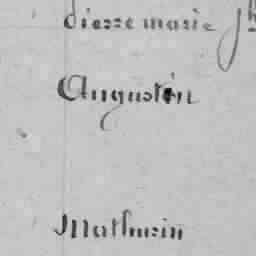 Pierre marie Jh
Augustin
Mathurin